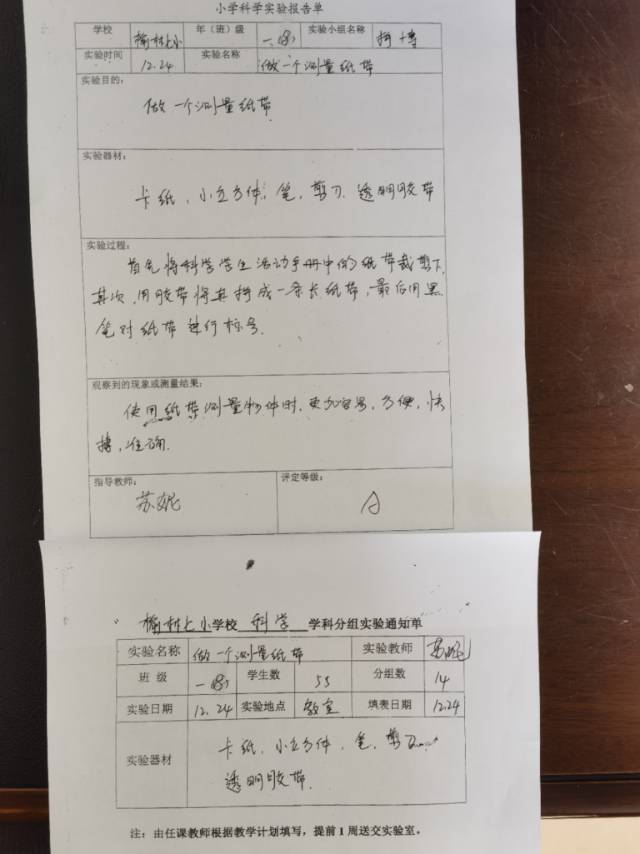 小学科学实验报告单
学校 榆林上小 年（班）级 一（8） 实验小组名称
实验时间 12.24 实验名称 做一个测量纸带
实验目的：
做一个测量纸带
实验器材：
卡纸、小立方体、笔、剪刀、透明胶带
实验过程：
首先将科学学生活动手册中的纸带裁剪下,
其次,用胶带将其拼成一条长纸带,最后用黑
笔对纸带进行标号.
观察到的现象或测量结果：
使用纸带测量物体时,更加容易,方便,快
捷,准确.
指导教师： 评定等级：
苏妮 A
小学校 科学 学科分组实验通知单
实验名称 做一个测量纸带 实验教师 苏妮
班 级 一（8） 学生数 55 分组数 14
实验日期 12.24 实验地点 教室 填表日期 12.24
卡纸、小立方体、笔、剪刀
实验器材
透明胶带.
注：由任课教师根据教学计划填写，提前1周送交实验室。